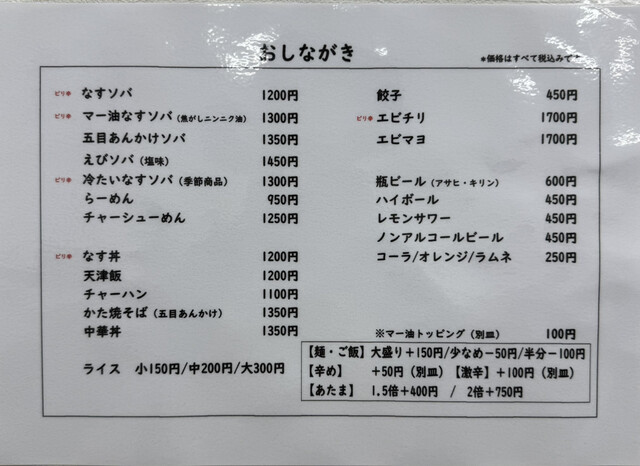 おしながき
*価格はすべて税込みです
ピリ辛 なすソバ 1200円
ピリ辛 マー油なすソバ（焦がしニンニク油） 1300円
五目あんかけソバ 1350円
えびソバ（塩味） 1450円
ピリ辛 冷たいなすソバ（季節商品） 1300円
らーめん 950円
チャーシューめん 1250円
ピリ辛 なす丼 1200円
天津飯 1200円
チャーハン 1100円
かた焼そば（五目あんかけ） 1350円
中華丼 1350円
ライス 小150円/中200円/大300円
餃子 450円
ピリ辛 エビチリ 1700円
エビマヨ 1700円
瓶ビール（アサヒ・キリン） 600円
ハイボール 450円
レモンサワー 450円
ノンアルコールビール 450円
コーラ/オレンジ/ラムネ 250円
※マー油トッピング（別皿） 100円
【麺・ご飯】大盛り＋150円/少なめ－50円/半分－100円
【辛め】 ＋50円（別皿）【激辛】＋100円（別皿）
【あたま】 1.5倍＋400円 / 2倍＋750円